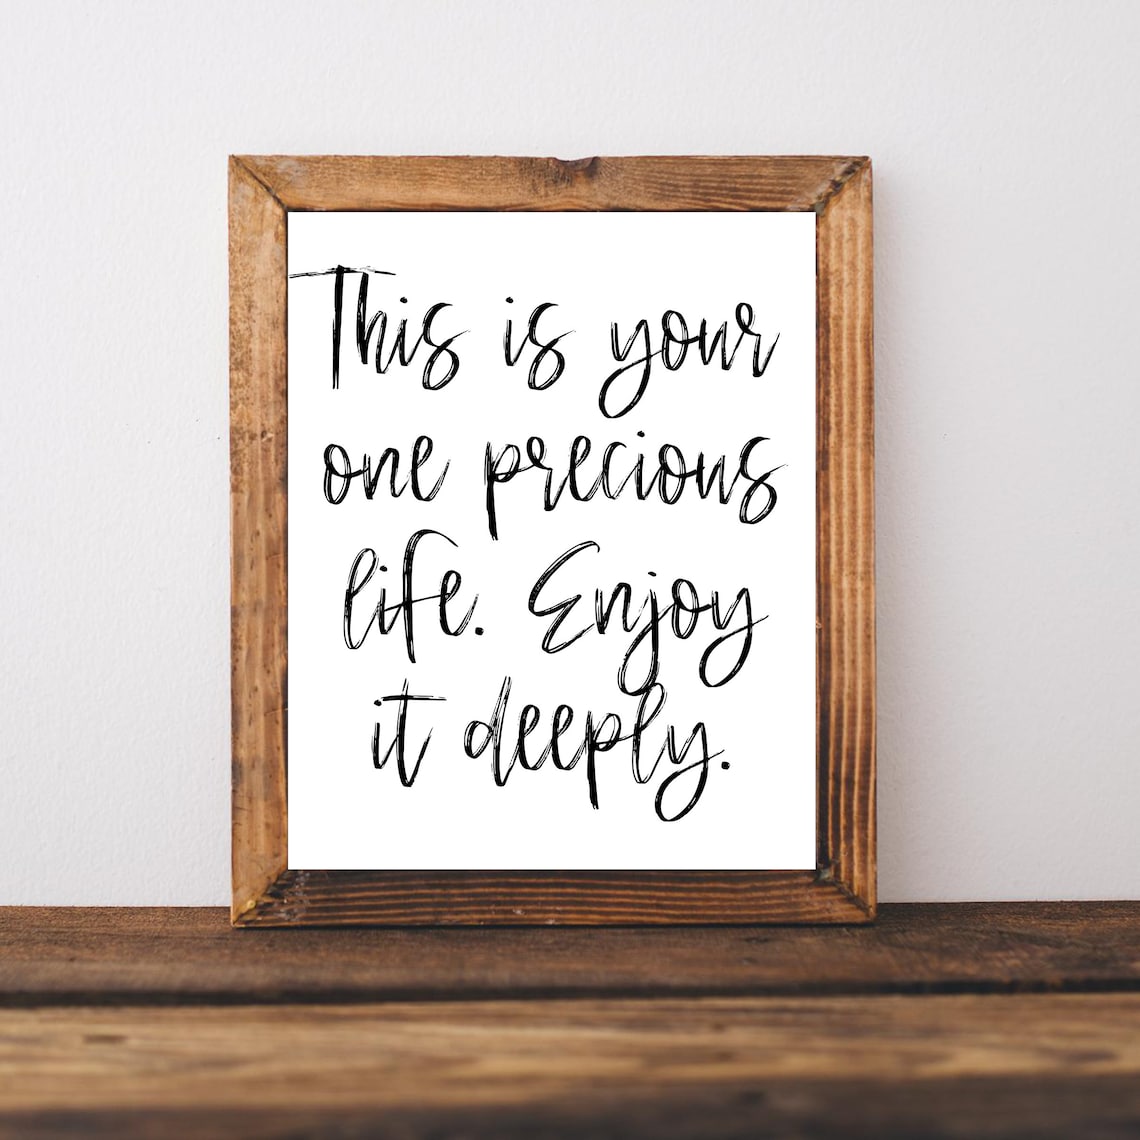 This is your
one precious
life. Enjoy
it deeply.